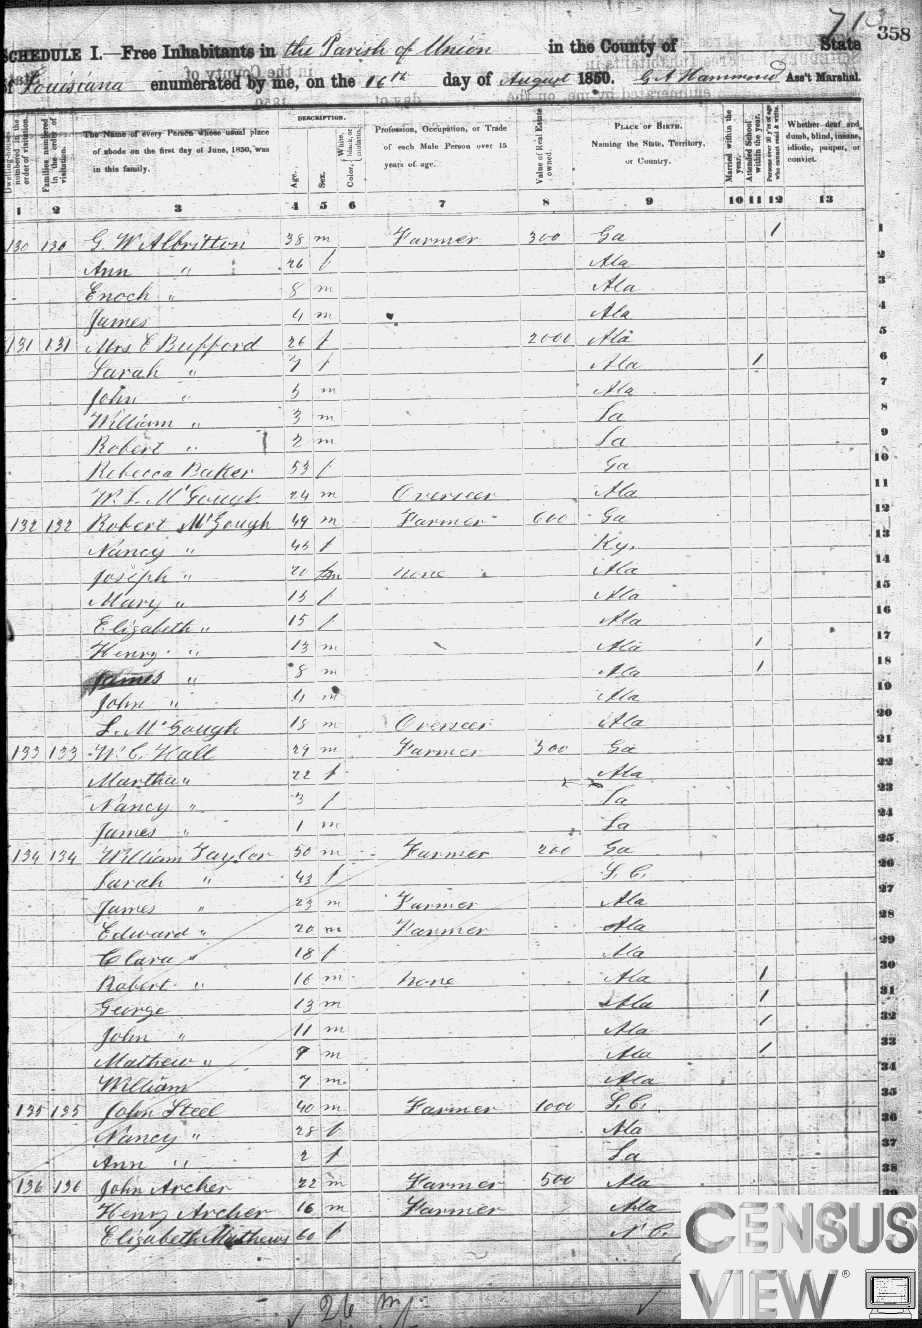 71
358
SCHEDULE I.—Free Inhabitants in the Parish of Union in the County of State
of Louisiana enumerated by me, on the 16th day of August 1850. G A Hammond Ass't Marshal.
Dwelling-houses numbered in the order of visitation.
Families numbered in the order of visitation.
The Name of every Person whose usual place of abode on the first day of June, 1850, was in this family.
DESCRIPTION.
Age.
Sex.
Color, White, black, or mulatto.
Profession, Occupation, or Trade of each Male Person over 15 years of age.
Value of Real Estate owned.
PLACE OF BIRTH. Naming the State, Territory, or Country.
Married within the year.
Attended School within the year.
Persons over 20 y'rs of age who cannot read & write.
Whether deaf and dumb, blind, insane, idiotic, pauper, or convict.
1 2 3 4 5 6 7 8 9 10 11 12 13
130 130 G. W Albritton 38 m Farmer 300 Ga 1 1
Ann " 26 f Ala 2
Enoch " 8 m Ala 3
James 4 m Ala 4
131 131 Mrs E Bufford 26 f 2000 Ala 5
Sarah " 7 f Ala 1 6
John " 5 m Ala 7
William " 3 m La 8
Robert " 2 m La 9
Rebecca Baker 53 f Ga 10
W. L. McGough 24 m Overseer Ala 11
132 132 Robert McGough 49 m Farmer 600 Ga 12
Nancy " 45 f Ky. 13
Joseph " 20 m none Ala 14
Mary " 15 f Ala 15
Elizabeth " 15 f Ala 16
Henry " 13 m Ala 1 17
James " 8 m Ala 1 18
John " 4 m Ala 19
L. McGough 18 m Overseer Ala 20
133 133 W. C. Hall 29 m Farmer 300 Ga 21
Martha " 22 f Ala 22
Nancy " 3 f La 23
James " 1 m La 24
134 134 William Taylor 50 m Farmer 200 Ga 25
Sarah " 43 f S. C. 26
James " 23 m Farmer Ala 27
Edward " 20 m Farmer Ala 28
Clara " 18 f Ala 29
Robert " 16 m none Ala 1 30
George 13 m Ala 1 31
John " 11 m Ala 1 32
Mathew " 9 m Ala 1 33
William 7 m Ala 34
135 135 John Steel 40 m Farmer 1000 S. C. 35
Nancy " 28 f Ala 36
Ann " 2 f La 37
136 136 John Archer 22 m Farmer 500 Ala 38
Henry Archer 16 m Farmer Ala 39
Elizabeth Mathews 60 f N. C.
26 m
CENSUS
VIEW®